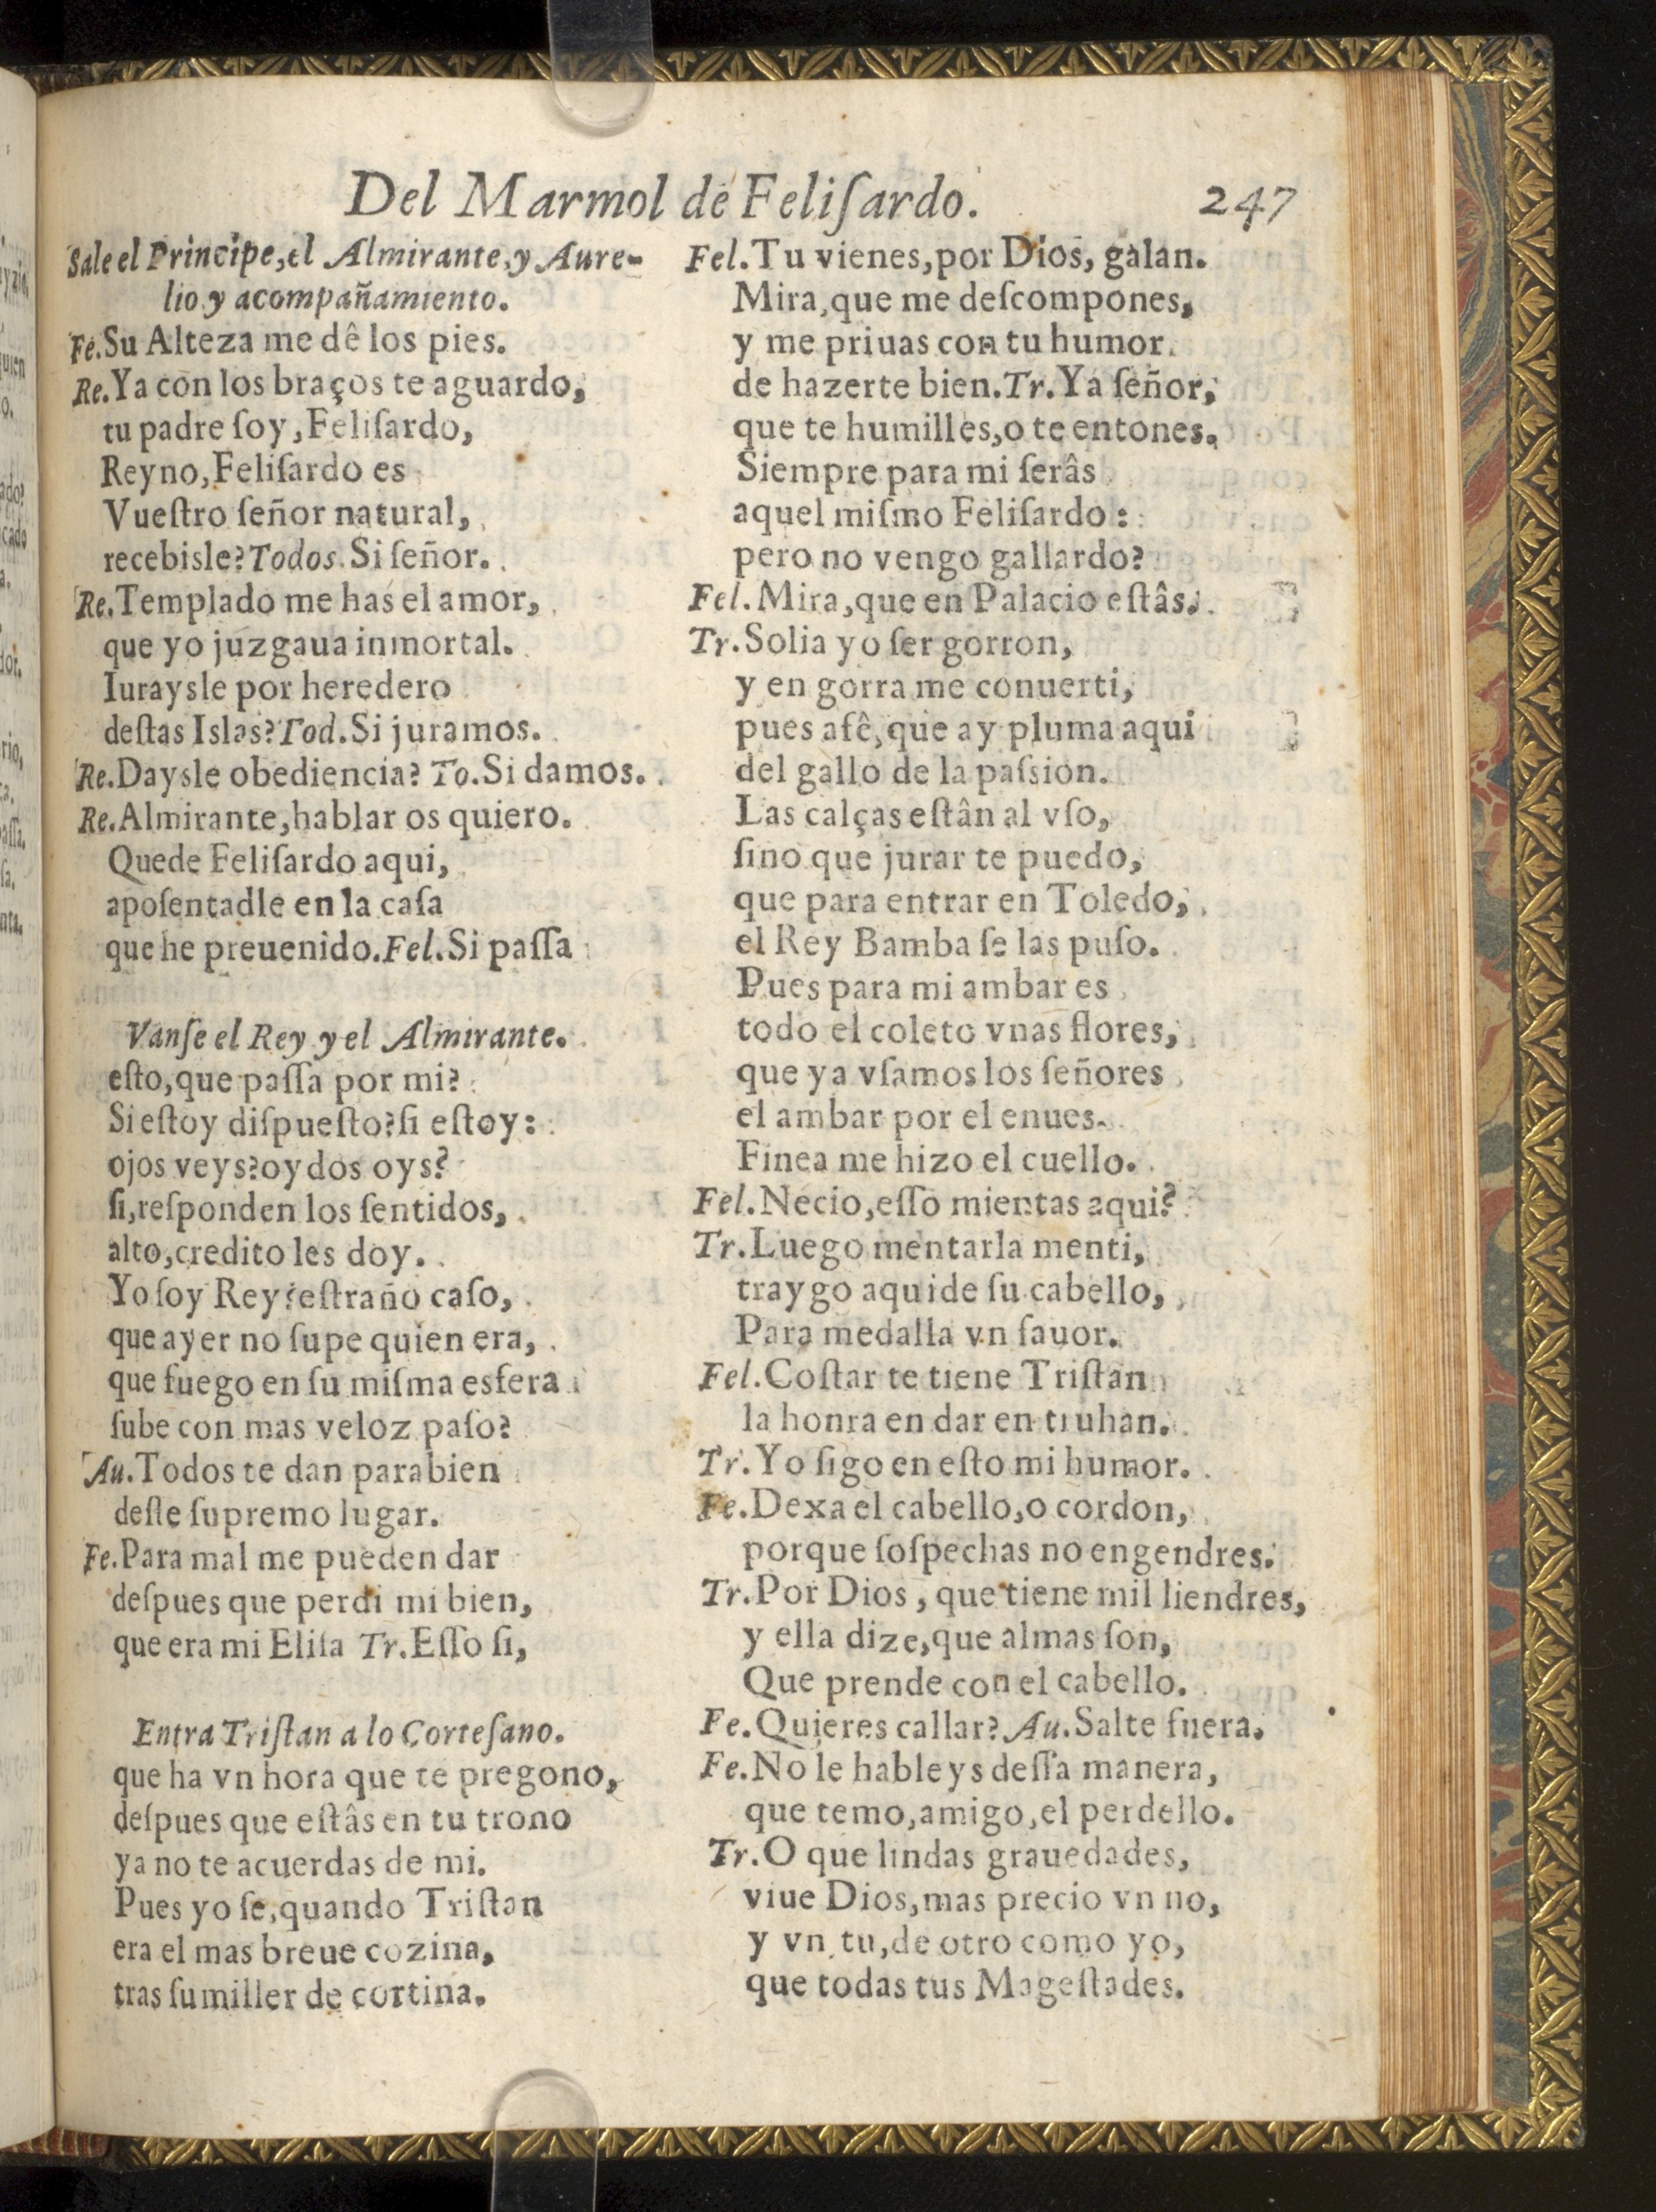 Del Marmol de Feliſardo. 247
Sale el Principe, el Almirante, y Aure-
lio y acompañamiento.
Fe. Su Alteza me dê los pies.
Re. Ya con los braços te aguardo,
tu padre ſoy, Feliſardo,
Reyno, Feliſardo es
Vueſtro ſeñor natural,
recebisle? Todos. Si ſeñor.
Re. Templado me has el amor,
que yo juzgaua inmortal.
Iuraysle por heredero
deſtas Islas? Tod. Si juramos.
Re. Daysle obediencia? To. Si damos.
Re. Almirante, hablar os quiero.
Quede Feliſardo aqui,
apoſentadle en la caſa
que he preuenido. Fel. Si paſſa
Vanſe el Rey y el Almirante.
eſto, que paſſa por mi?
Si eſtoy diſpueſto? ſi eſtoy:
ojos veys? oydos oys?
ſi, reſponden los ſentidos,
alto, credito les doy.
Yo ſoy Rey? eſtraño caſo,
que ayer no ſupe quien era,
que fuego en ſu miſma esfera
ſube con mas veloz paſo?
Au. Todos te dan parabien
deſte ſupremo lugar.
Fe. Para mal me pueden dar
deſpues que perdi mi bien,
que era mi Eliſa Tr. Eſſo ſi,
Entra Triſtan a lo Corteſano.
que ha vn hora que te pregono,
deſpues que eſtâs en tu trono
ya no te acuerdas de mi.
Pues yo ſe, quando Triſtan
era el mas breue cozina,
tras ſumiller de cortina.
Fel. Tu vienes, por Dios, galan.
Mira, que me deſcompones,
y me priuas con tu humor
de hazerte bien. Tr. Ya ſeñor,
que te humilles, o te entones.
Siempre para mi ſerâs
aquel miſmo Feliſardo:
pero no vengo gallardo?
Fel. Mira, que en Palacio eſtâs.
Tr. Solia yo ſer gorron,
y en gorra me conuerti,
pues afê, que ay pluma aqui
del gallo de la paſsion.
Las calças eſtân al vſo,
ſino que jurar te puedo,
que para entrar en Toledo,
el Rey Bamba ſe las puſo.
Pues para mi ambar es
todo el coleto vnas flores,
que ya vſamos los ſeñores
el ambar por el enues.
Finea me hizo el cuello.
Fel. Necio, eſſo mientas aqui?
Tr. Luego mentarla menti,
traygo aqui de ſu cabello,
Para medalla vn fauor.
Fel. Coſtar te tiene Triſtan
la honra en dar en truhan.
Tr. Yo ſigo en eſto mi humor.
Fe. Dexa el cabello, o cordon,
porque ſoſpechas no engendres.
Tr. Por Dios, que tiene mil liendres,
y ella dize, que almas ſon,
Que prende con el cabello.
Fe. Quieres callar? Au. Salte fuera.
Fe. No le hableys deſſa manera,
que temo, amigo, el perdello.
Tr. O que lindas grauedades,
viue Dios, mas precio vn no,
y vn tu, de otro como yo,
que todas tus Mageſtades.